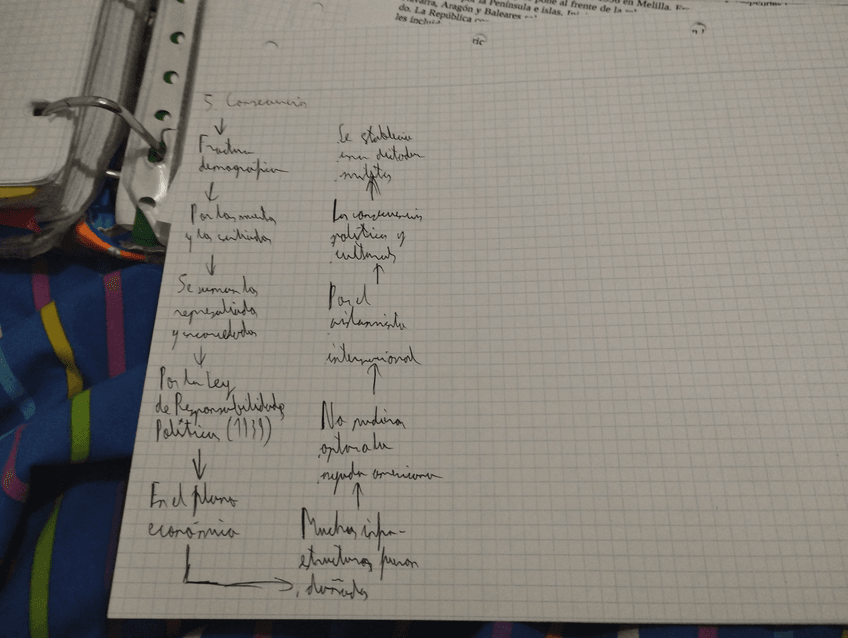 en Melilla. En
pone al frente de la
la Península e islas.
Navarra, Aragón y Baleares
do. La República
les inclui
5. Consecuencias
Fractura
demográfica
Por los muertos
y los exiliados
Se suman los
represaliados
y encarcelados
Por la Ley
de Responsabilidades
Políticas (1939)
En el plano
económico
Muchas infra-
estructuras fueron
dañadas
No pudieron
optar a la
ayuda americana
Por el
aislamiento
internacional
Las consecuencias
políticas y
culturales
Se establece
una dictadura
militar